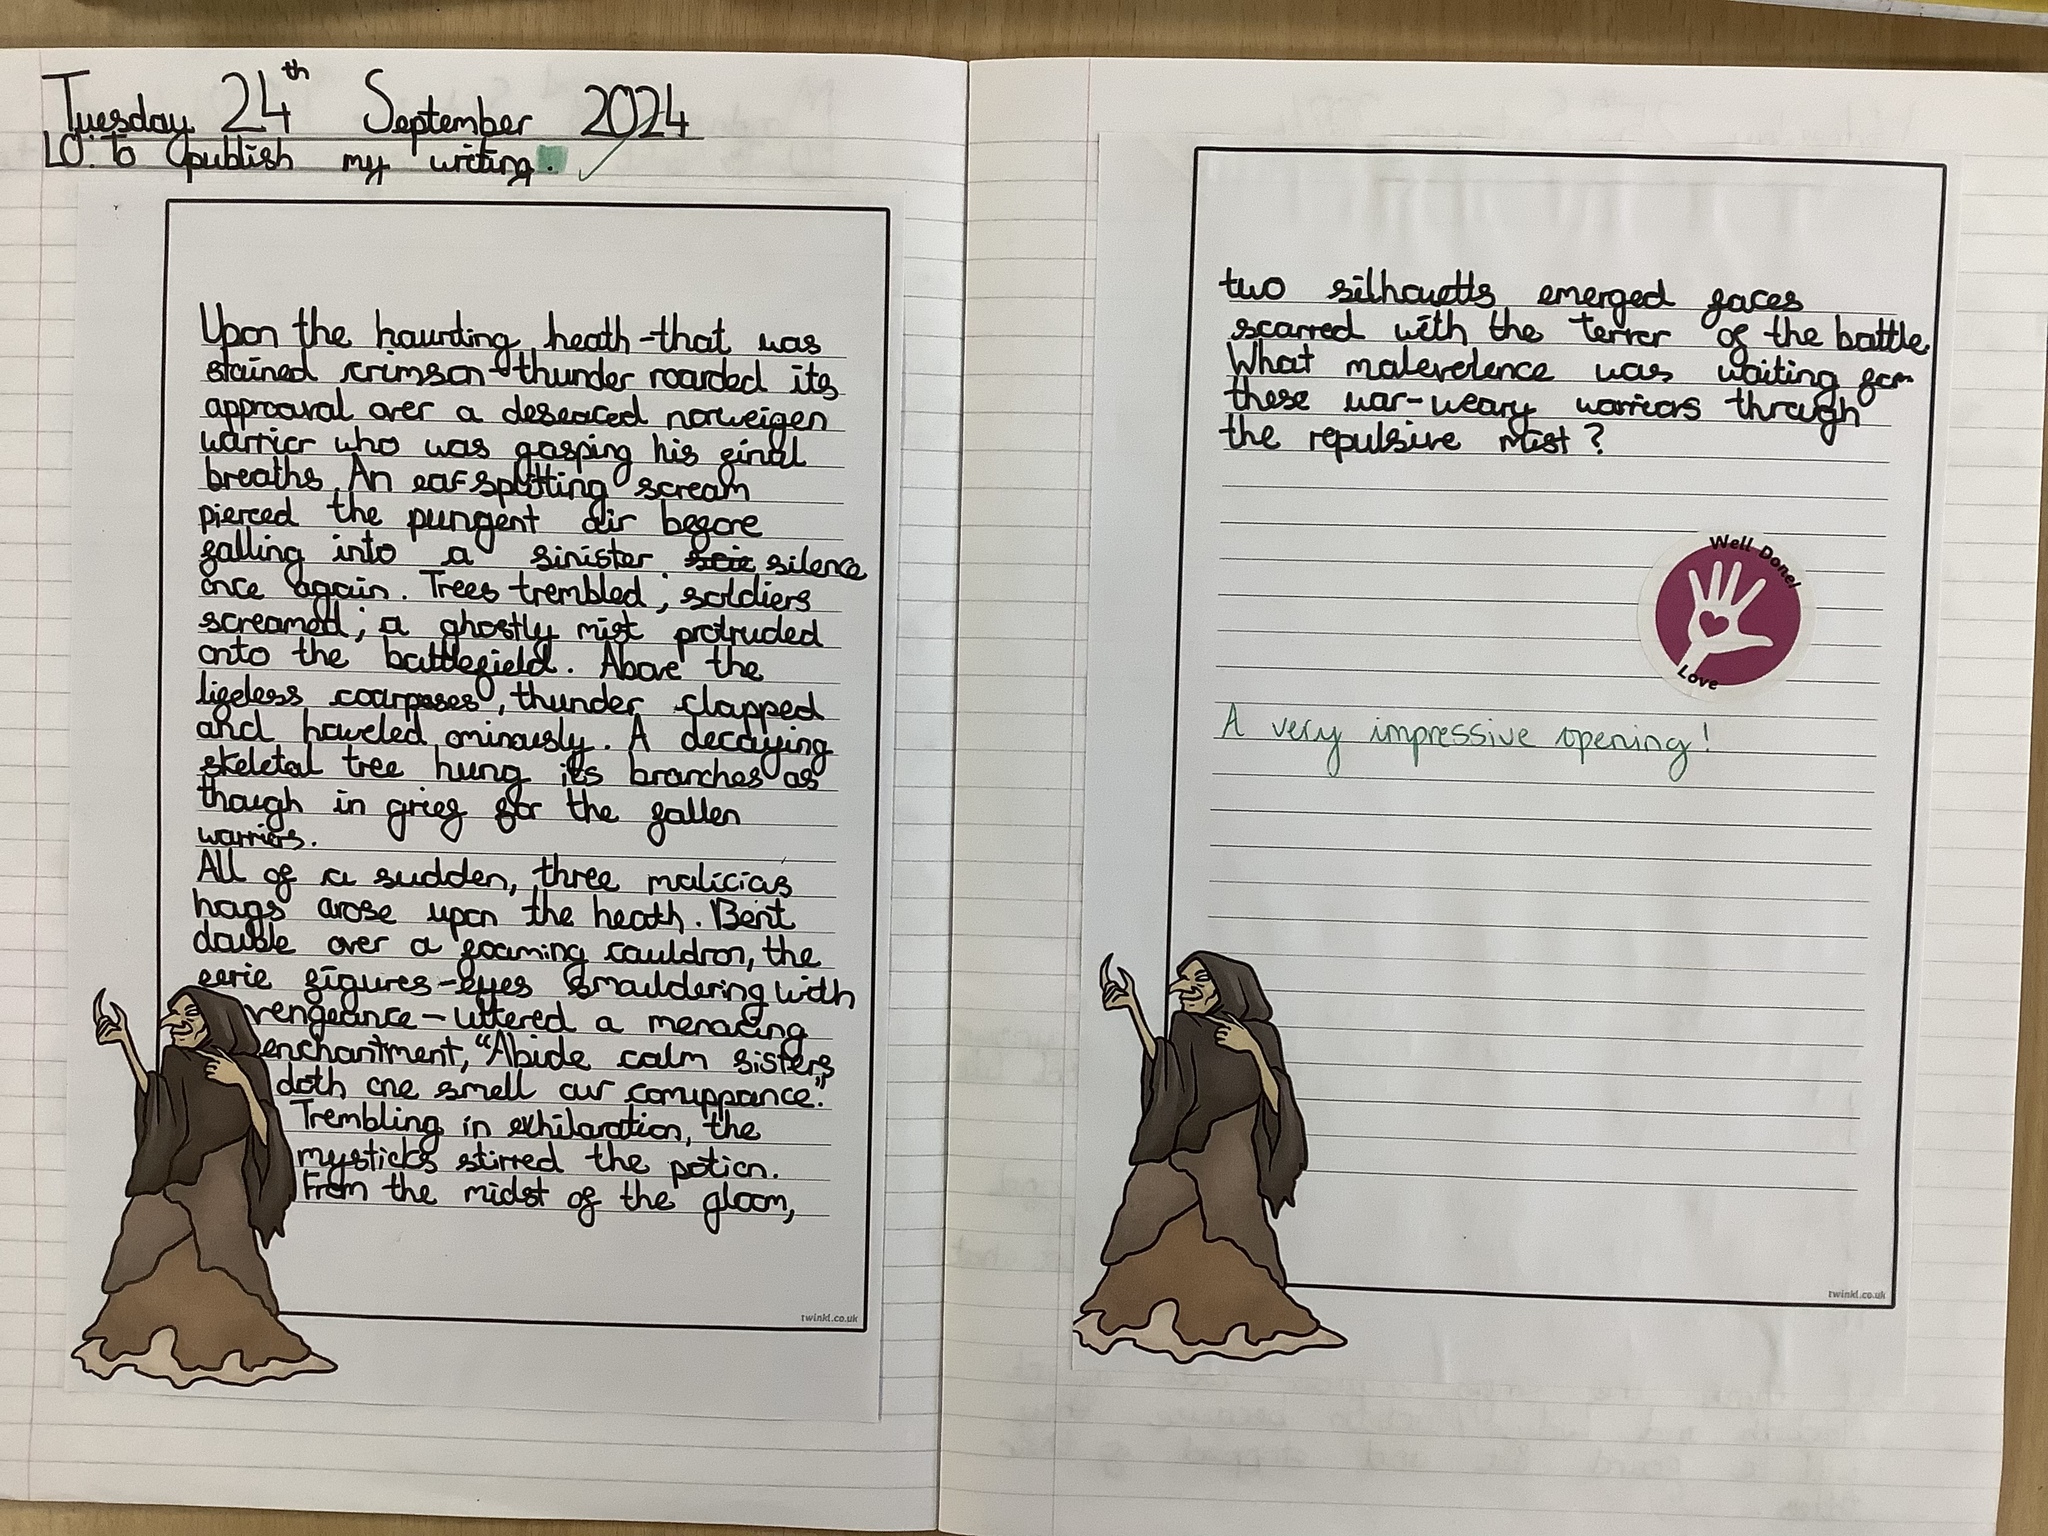 Tuesday 24th September 2024
LO: To publish my writing.
Upon the haunting heath-that was
stained crimson-thunder roarded its
approaval over a deseaced norweigen
warrior who was gasping his final
breaths. An ear splitting scream
pierced the pungent air before
falling into a sinister silence
once again. Trees trembled; soldiers
screamed; a ghostly mist protruded
onto the battlefield. Above the
lifeless coarpases, thunder clapped
and howeled ominously. A decaying
skeletal tree hung its branches as
though in grief for the fallen
warriers.
All of a sudden, three malicias
hags arose upon the heath. Bent
double over a foaming cauldron, the
eerie figures-eyes smouldering with
vengeance-uttered a menacing
enchantment, "Abide calm sisters
doth one smell our comuppance."
Trembling in exhilaration, the
mysticks stirred the potion.
From the midst of the gloom,
twinkl.co.uk
two silhoutts emerged faces
scarred with the terror of the battle.
What malevelence was waiting for
these war-weary warriors through
the repulsive mist?
Well Done!
Love
A very impressive opening!
twinkl.co.uk